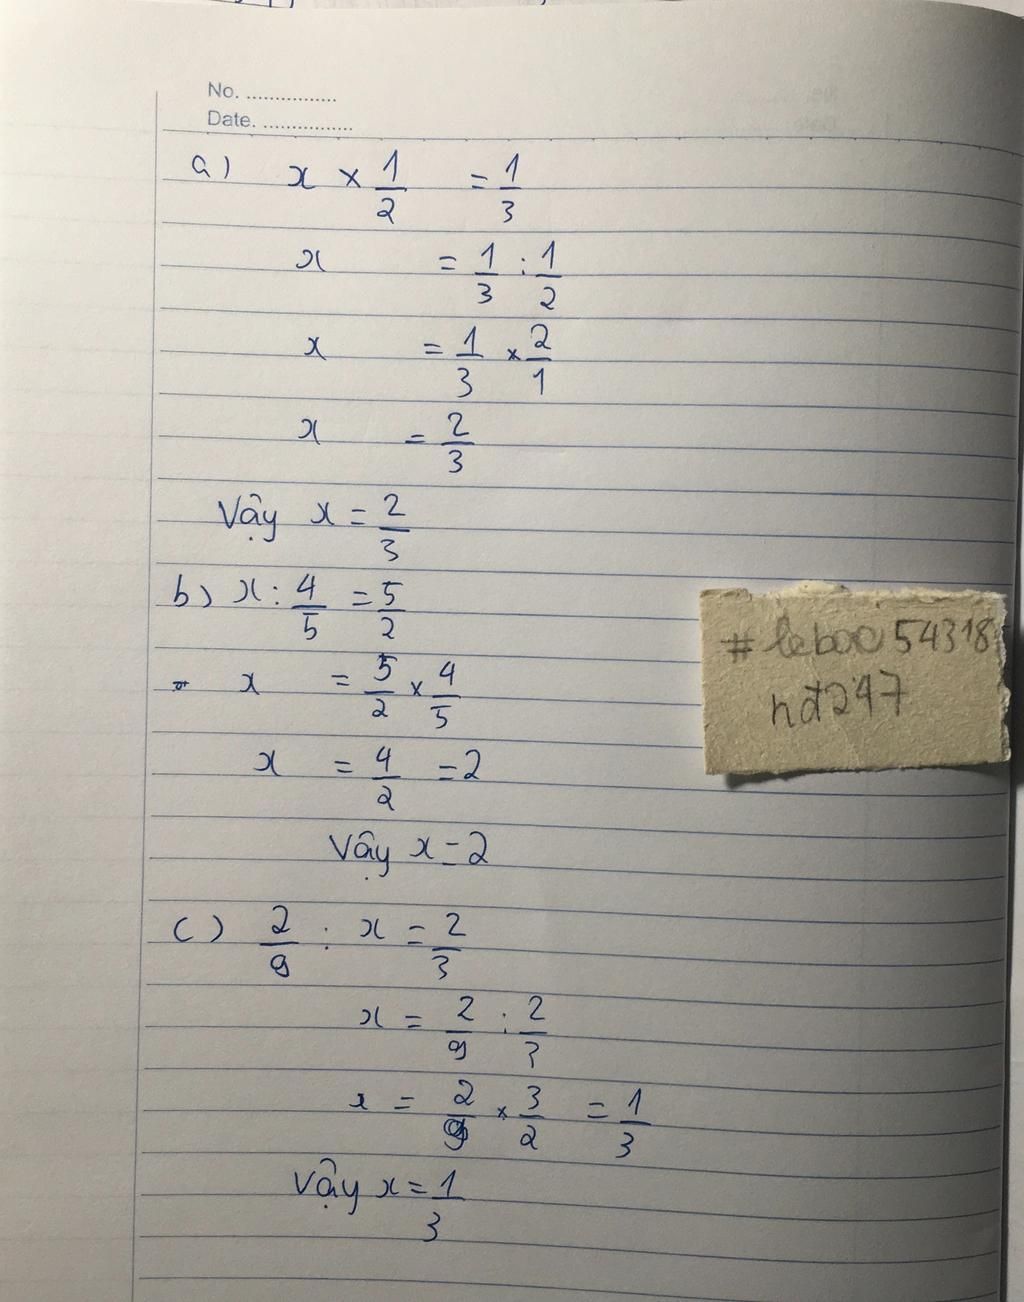 No. ................
Date. ................
a) x × 1/2 = 1/3
x = 1/3 : 1/2
x = 1/3 × 2/1
x = 2/3
Vậy x = 2/3
b) x : 4/5 = 5/2
x = 5/2 × 4/5
x = 4/2 = 2
Vậy x = 2
c) 2/9 : x = 2/3
x = 2/9 : 2/3
x = 2/9 × 3/2 = 1/3
Vậy x = 1/3
54318